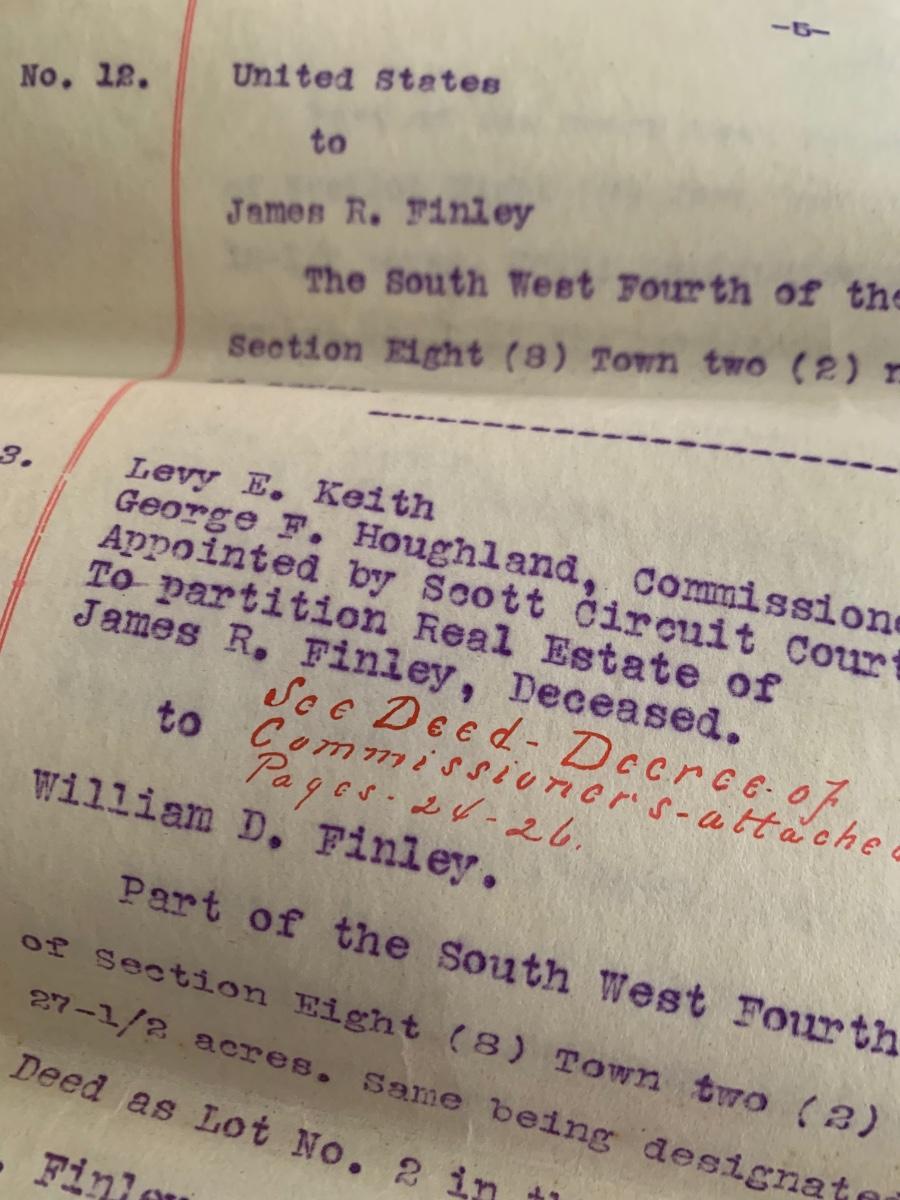 -5-
No. 12.
United States
to
James R. Finley
The South West Fourth of the
Section Eight (8) Town two (2)
3.
Levy E. Keith
George F. Houghland, Commissione
Appointed by Scott Circuit Court
To partition Real Estate of
James R. Finley, Deceased.
to
See Deed- Decree of
Commissioner's-attached
Pages- 24-26.
William D. Finley.
Part of the South West Fourth
of Section Eight (8) Town two (2)
27-1/2 acres. Same being designated
Deed as Lot No. 2 in
Finley